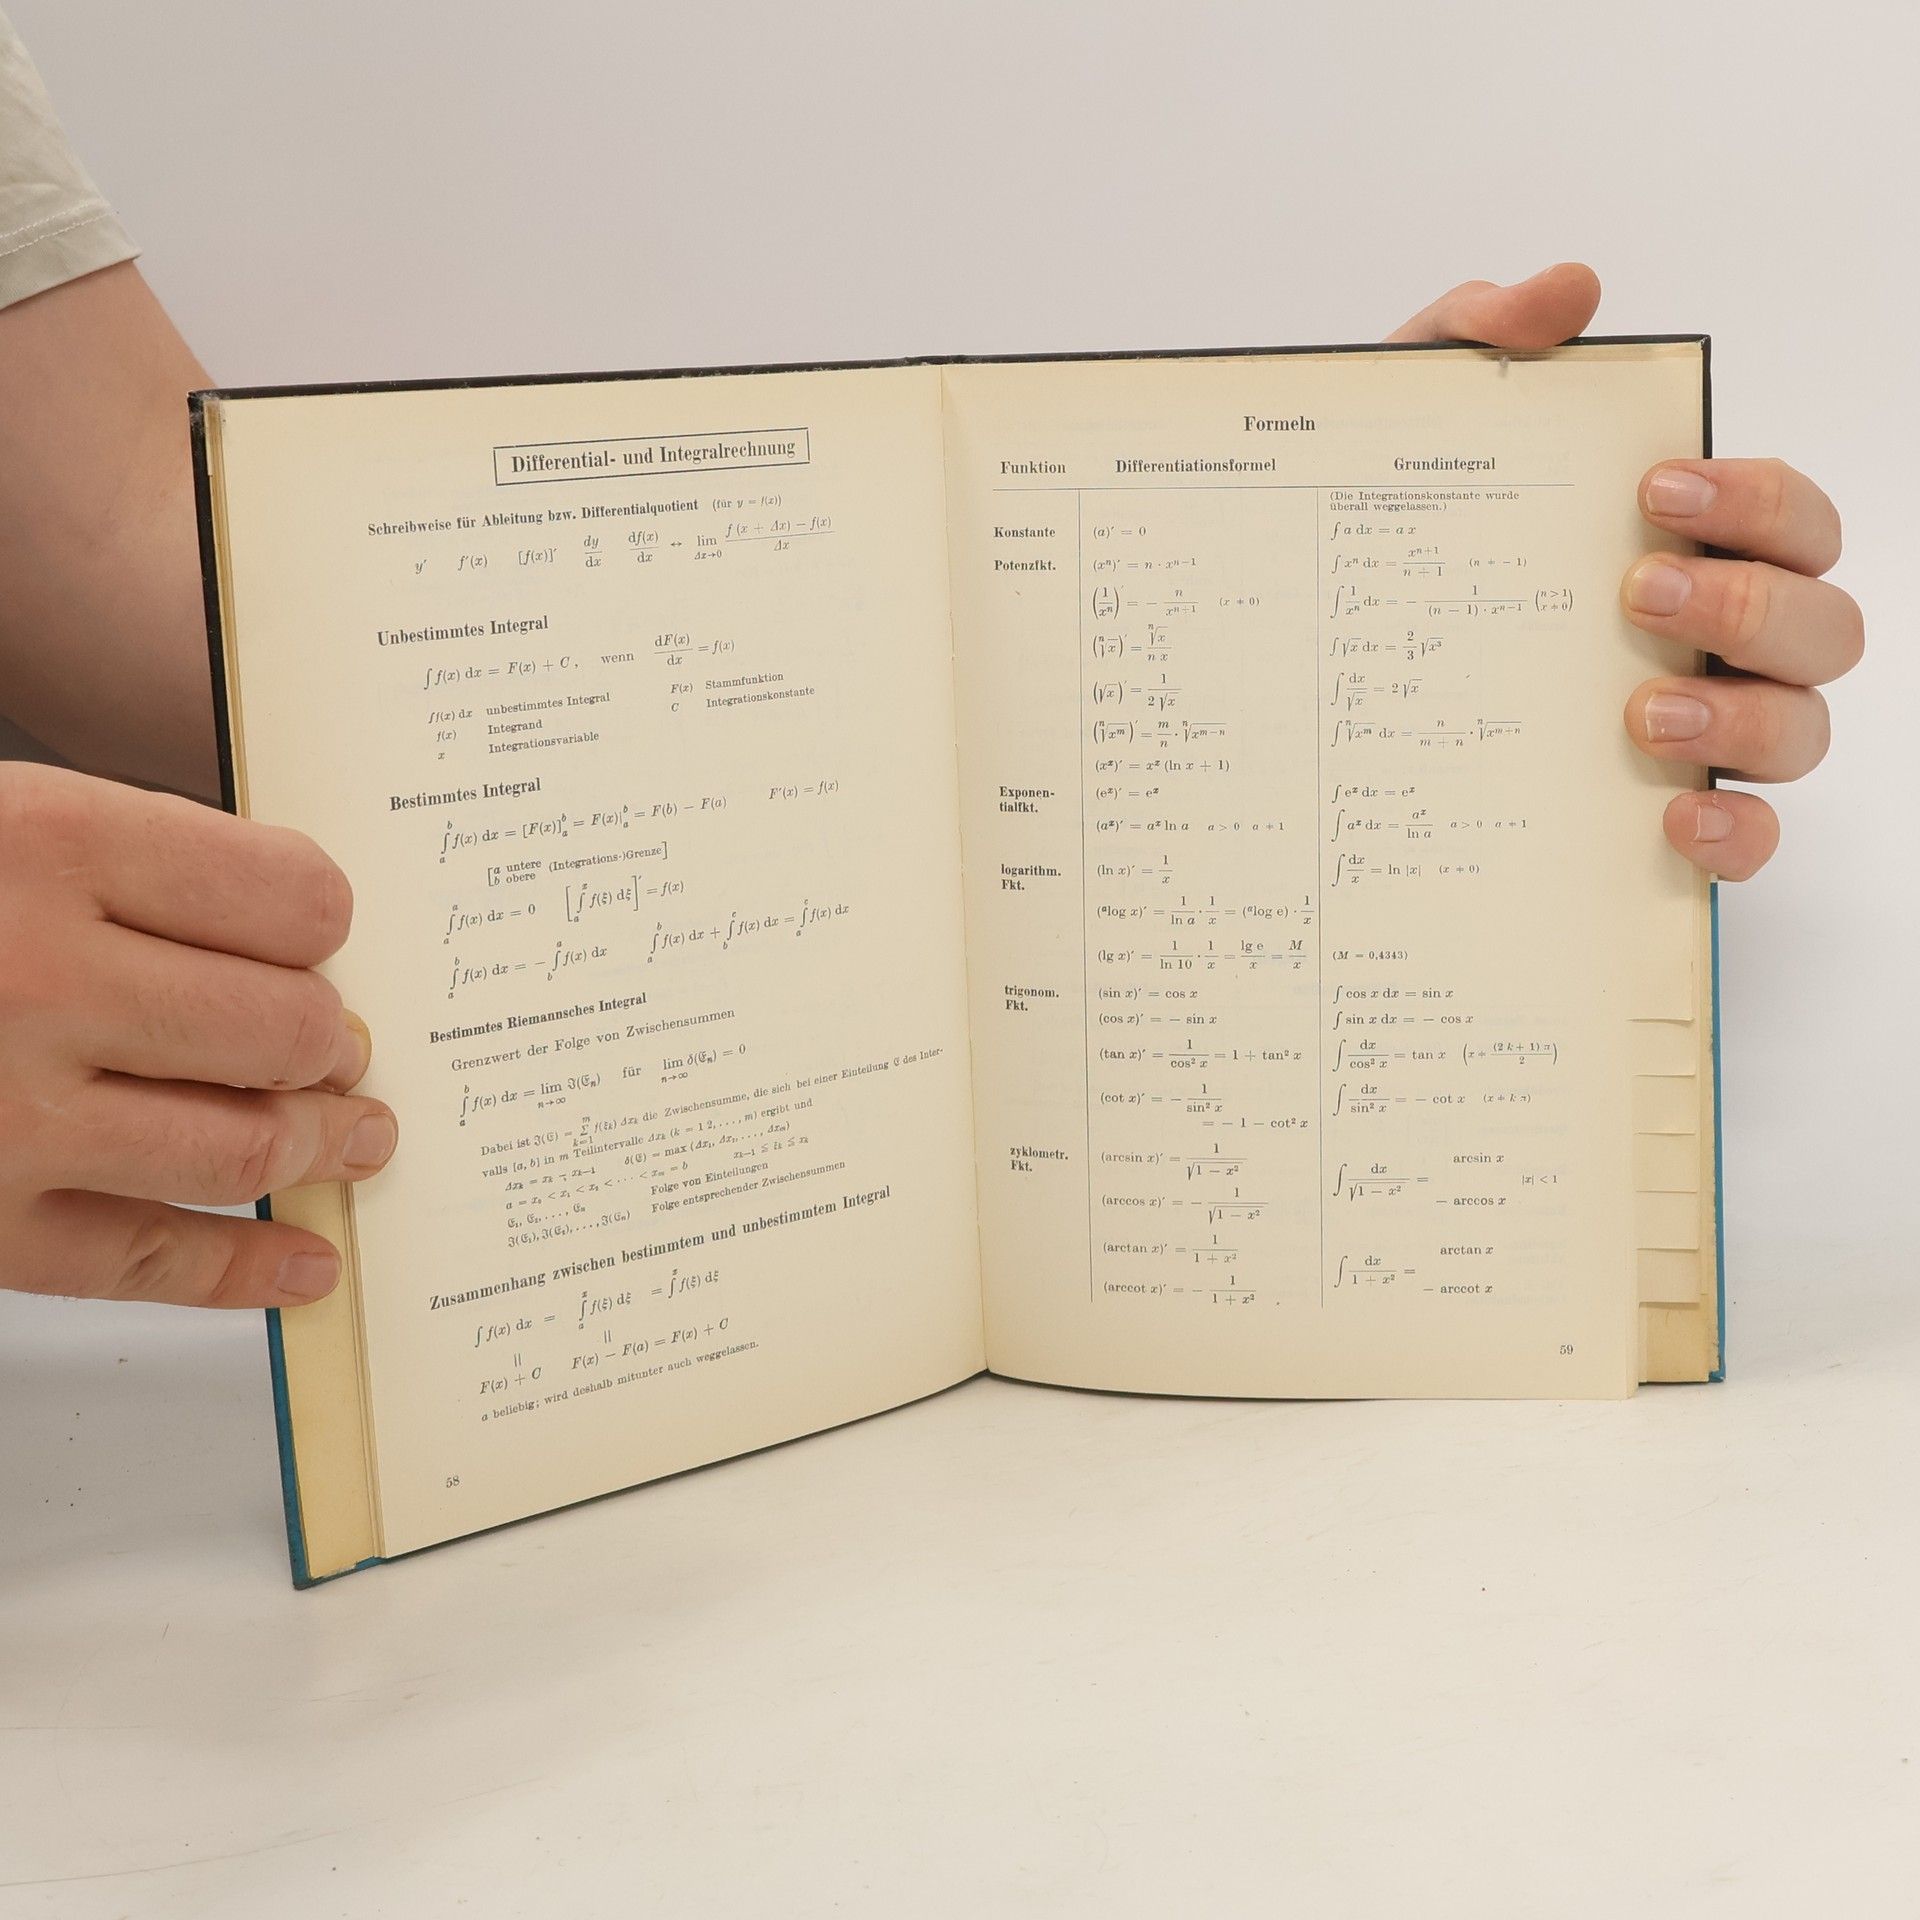 Differential- und Integralrechnung
Schreibweise für Ableitung bzw. Differentialquotient (für y = f(x))
y′ f′(x) [f(x)]′ dy/dx df(x)/dx ↔ lim Δx→0 (f (x + Δx) − f(x))/Δx
Unbestimmtes Integral
∫ f(x) dx = F(x) + C, wenn dF(x)/dx = f(x)
∫f(x) dx unbestimmtes Integral F(x) Stammfunktion
f(x) Integrand C Integrationskonstante
x Integrationsvariable
Bestimmtes Integral
∫_a^b f(x) dx = [F(x)]_a^b = F(x)|_a^b = F(b) − F(a) F′(x) = f(x)
[a untere (Integrations-)Grenze]
b obere
∫_a^a f(x) dx = 0 [∫_a^x f(ξ) dξ]′ = f(x)
∫_a^b f(x) dx = − ∫_b^a f(x) dx ∫_a^b f(x) dx + ∫_b^c f(x) dx = ∫_a^c f(x) dx
Bestimmtes Riemannsches Integral
Grenzwert der Folge von Zwischensummen
∫_a^b f(x) dx = lim n→∞ ℑ(𝔈ₙ) für lim n→∞ δ(𝔈ₙ) = 0
Dabei ist ℑ(𝔈) = Σ_{k=1}^m f(ξₖ) Δxₖ die Zwischensumme, die sich bei einer Einteilung 𝔈 des Inter-
valls [a, b] in m Teilintervalle Δxₖ (k = 1 2, . . . , m) ergibt und
Δxₖ = xₖ − xₖ₋₁ δ(𝔈) = max (Δx₁, Δx₂, . . . , Δxₘ)
a = x₀ < x₁ < x₂ < · · · < xₘ = b xₖ₋₁ ≦ ξₖ ≦ xₖ
𝔈₁, 𝔈₂, . . . , 𝔈ₙ Folge von Einteilungen
ℑ(𝔈₁), ℑ(𝔈₂), . . . , ℑ(𝔈ₙ) Folge entsprechender Zwischensummen
Zusammenhang zwischen bestimmtem und unbestimmtem Integral
∫ f(x) dx = ∫_a^x f(ξ) dξ = ∫^x f(ξ) dξ
|| ||
F(x) + C F(x) − F(a) = F(x) + C
a beliebig; wird deshalb mitunter auch weggelassen.
58
Formeln
Funktion Differentiationsformel Grundintegral
(Die Integrationskonstante wurde
überall weggelassen.)
Konstante (a)′ = 0 ∫ a dx = a x
Potenzfkt. (xⁿ)′ = n · xⁿ⁻¹ ∫ xⁿ dx = xⁿ⁺¹/(n + 1) (n ≠ − 1)
(1/xⁿ)′ = − n/xⁿ⁺¹ (x ≠ 0) ∫ 1/xⁿ dx = − 1/((n − 1) · xⁿ⁻¹) (n > 1 x ≠ 0)
(ⁿ√x)′ = ⁿ√x/(n x) ∫ √x dx = 2/3 √x³
(√x)′ = 1/(2 √x) ∫ dx/√x = 2 √x
(ⁿ√xᵐ)′ = m/n · ⁿ√xᵐ⁻ⁿ ∫ ⁿ√xᵐ dx = n/(m + n) · ⁿ√xᵐ⁺ⁿ
(xˣ)′ = xˣ (ln x + 1)
Exponen- (eˣ)′ = eˣ ∫ eˣ dx = eˣ
tialfkt.
(aˣ)′ = aˣ ln a a > 0 a ≠ 1 ∫ aˣ dx = aˣ/ln a a > 0 a ≠ 1
logarithm. (ln x)′ = 1/x ∫ dx/x = ln |x| (x ≠ 0)
Fkt.
(ᵃlog x)′ = 1/ln a · 1/x = (ᵃlog e) · 1/x
(lg x)′ = 1/ln 10 · 1/x = lg e/x = M/x (M = 0,4343)
trigonom. (sin x)′ = cos x ∫ cos x dx = sin x
Fkt.
(cos x)′ = − sin x ∫ sin x dx = − cos x
(tan x)′ = 1/cos² x = 1 + tan² x ∫ dx/cos² x = tan x (x ≠ (2 k + 1) π/2)
(cot x)′ = − 1/sin² x ∫ dx/sin² x = − cot x (x ≠ k π)
= − 1 − cot² x
zyklometr. (arcsin x)′ = 1/√(1 − x²) ∫ dx/√(1 − x²) = arcsin x
Fkt. |x| < 1
(arccos x)′ = − 1/√(1 − x²) − arccos x
(arctan x)′ = 1/(1 + x²) ∫ dx/(1 + x²) = arctan x
(arccot x)′ = − 1/(1 + x²) − arccot x
59